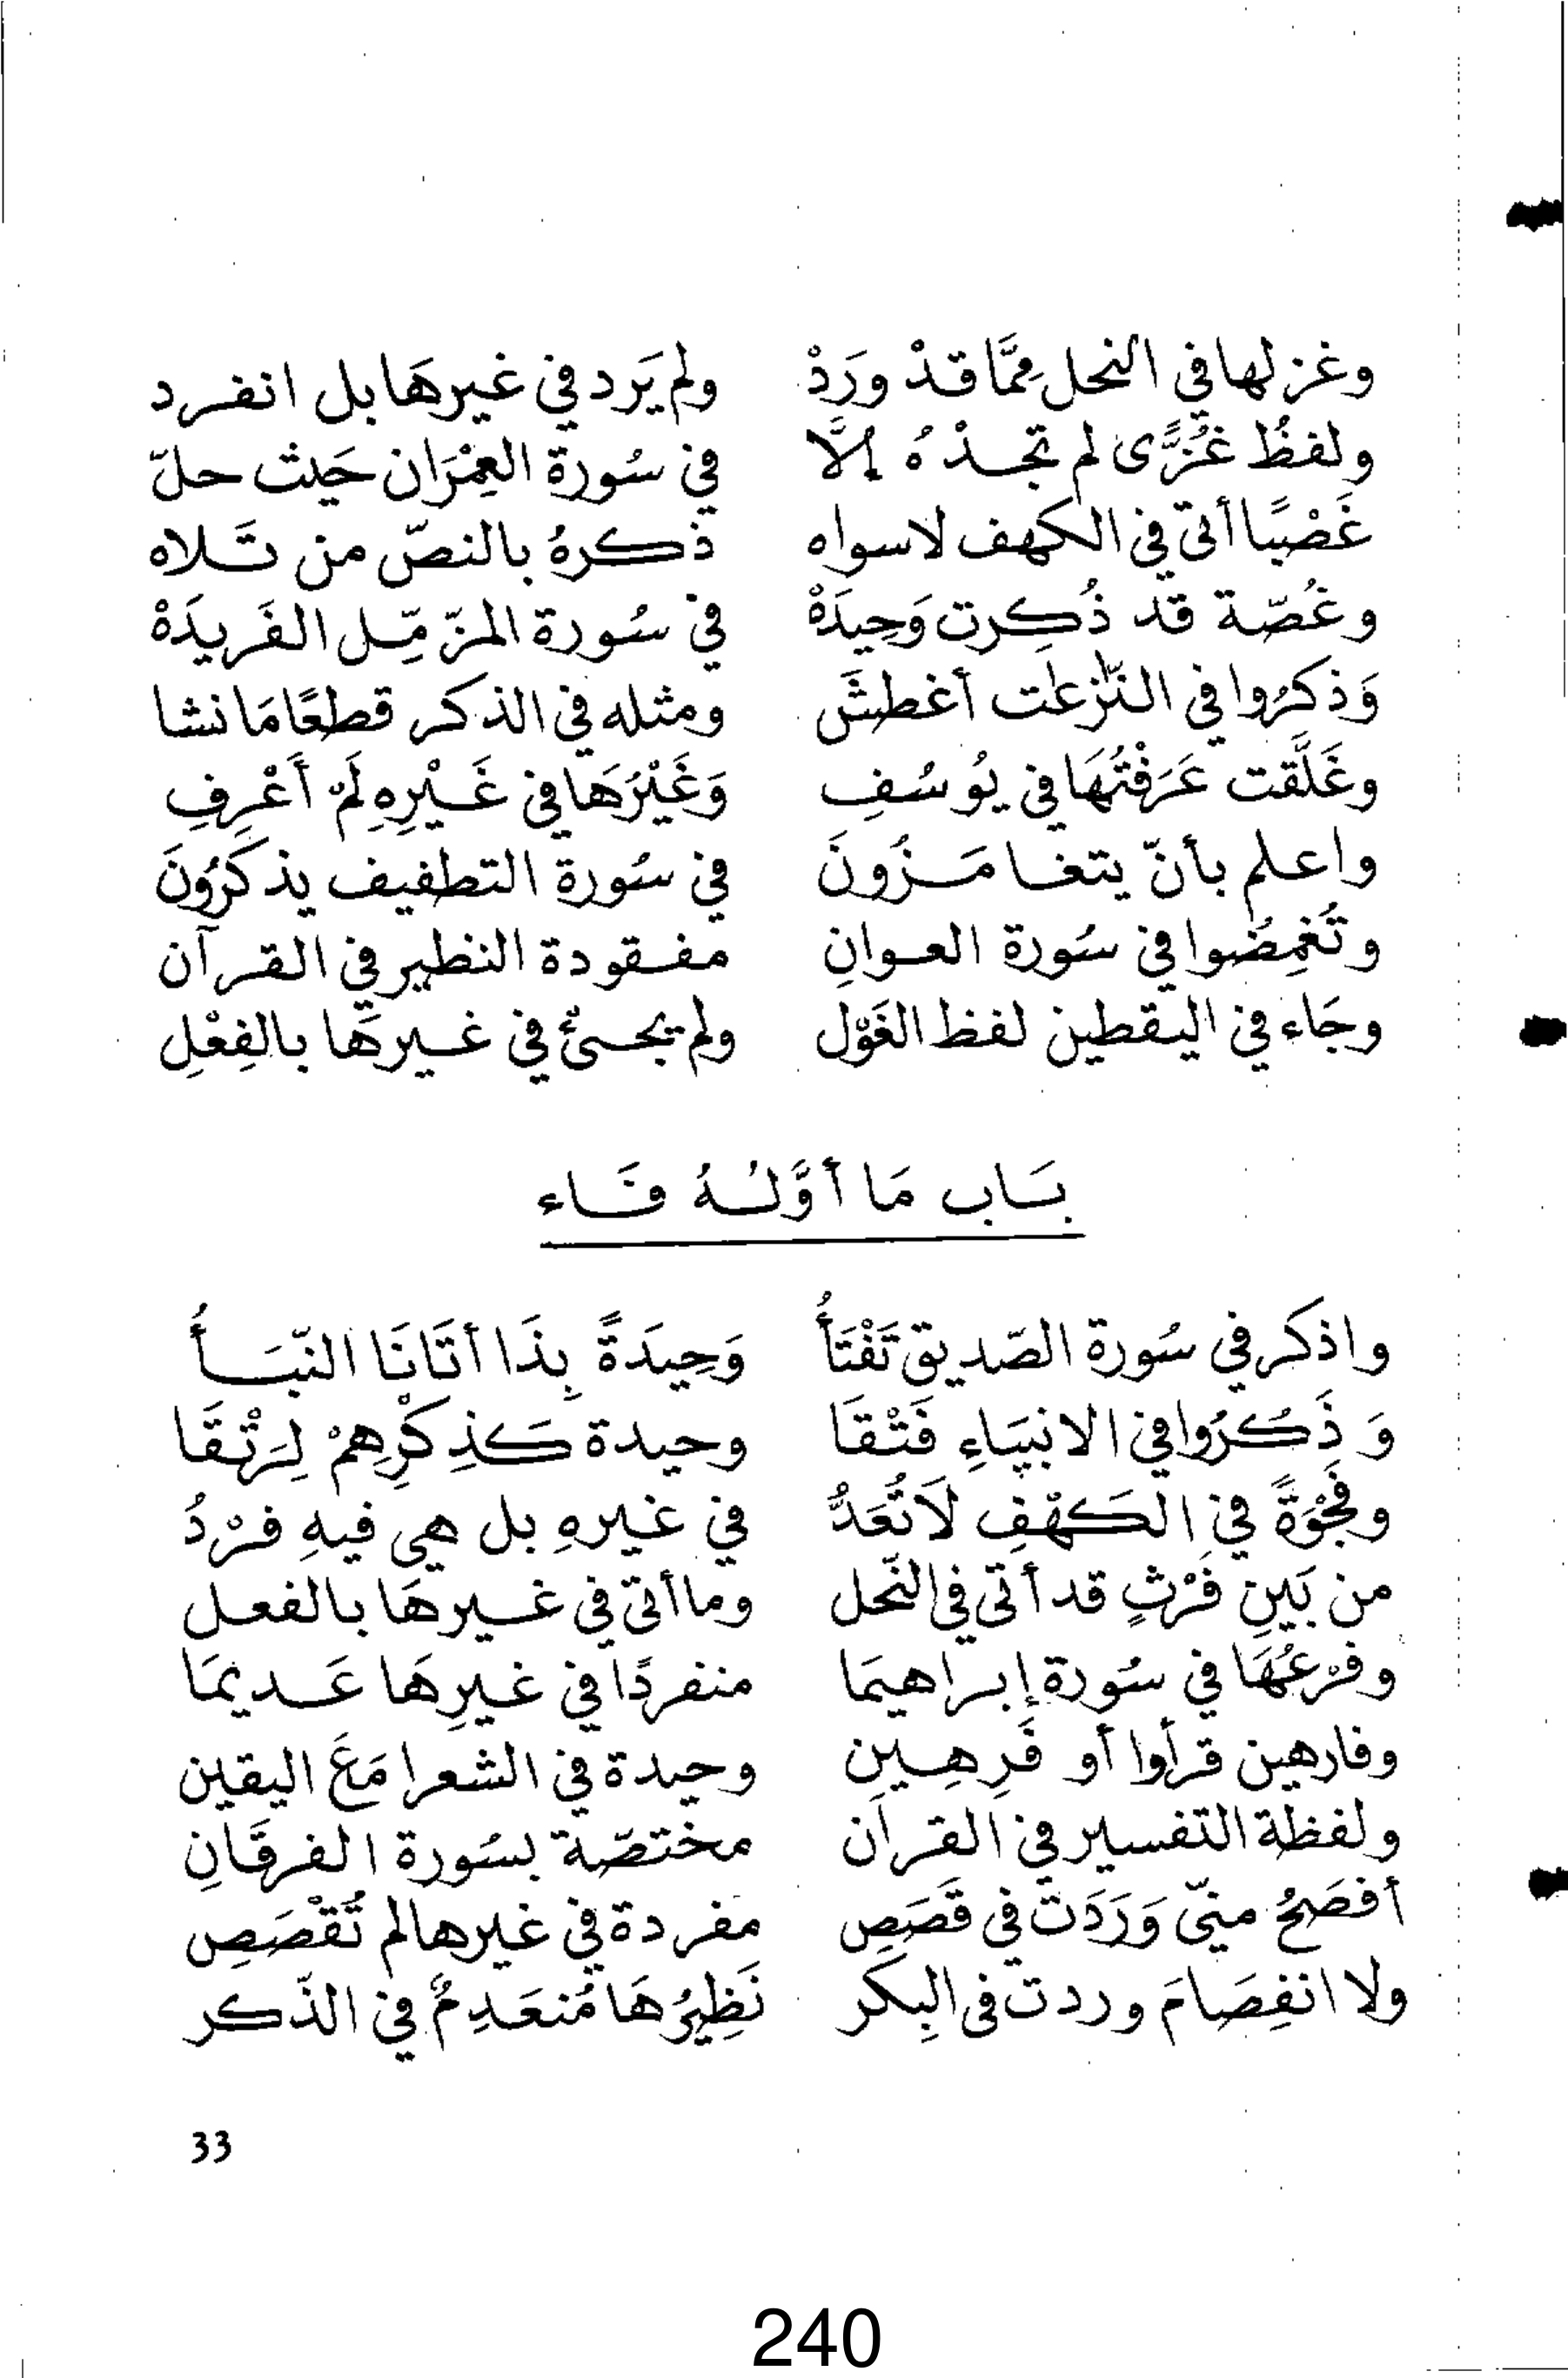 وغزلها في النحل مِمَّا قدْ ورَدْ ولم يَرد في غيرهَا بل انفرد
ولفظُ غُزًّى لم تجدْهُ إلَّا في سُورة العِمْرَان حَيث حلّ
غَصْبًا أتى في الكهف لا سواه ذكرهُ بالنصّ من تَلاه
وغُصّة قد ذُكِرت وَحِيدَهْ في سُورة المزّمِّل الفَريدَهْ
وَذكرُوا في النّزعٰت أغطشَ ومثله في الذكر قطعًا مَا نشا
وغَلَّقت عَرَفْتُهَا في يُوسُفِ وَغَيْرُهَا في غَيْرِهِ لَمْ أَعْرِفِ
واعلم بأنّ يتغامَزُونَ في سُورة التطفيف يذكَرُونَ
وتُغمِضُوا في سُورة العوانِ مفقودة النظير في القرآن
وجَاء في اليقطين لفظ الغَوْل ولم يجئْ في غيرهَا بالفِعْلِ
بَاب مَا أوَّلُهُ فَاء
واذكر في سُورة الصّديق تَفْتَأُ وَحِيدَةً بِذَا أتَانَا النّبَأُ
وَذَكَرُوا في الانبيَاءِ فَتْقَا وحيدة كَذِكْرِهِمْ لِرَتْقَا
وفَجْوَةً في الكَهْفِ لَا تُعَدُّ في غيرهِ بل هي فيهِ فرْدُ
من بَينِ فَرْثٍ قد أتى في النّحل وما أتى في غيرهَا بالفعل
وفرْعُهَا في سُورة إبراهيمَا منفردًا في غيرِهَا عَديمَا
وفارهين قرأوا أو فَرِهِينِ وحيدة في الشعرا مَعَ اليقين
ولفظة التفسير في القرآن مختصّة بسُورة الفرقَانِ
أفصَحُ منّي وَرَدَت في قَصَصِ مفردة في غيرها لم تُقْصَصِ
ولا انفِصَامَ وردت في البِكر نَظِيرُهَا مُنعَدِمٌ في الذّكر
33
240